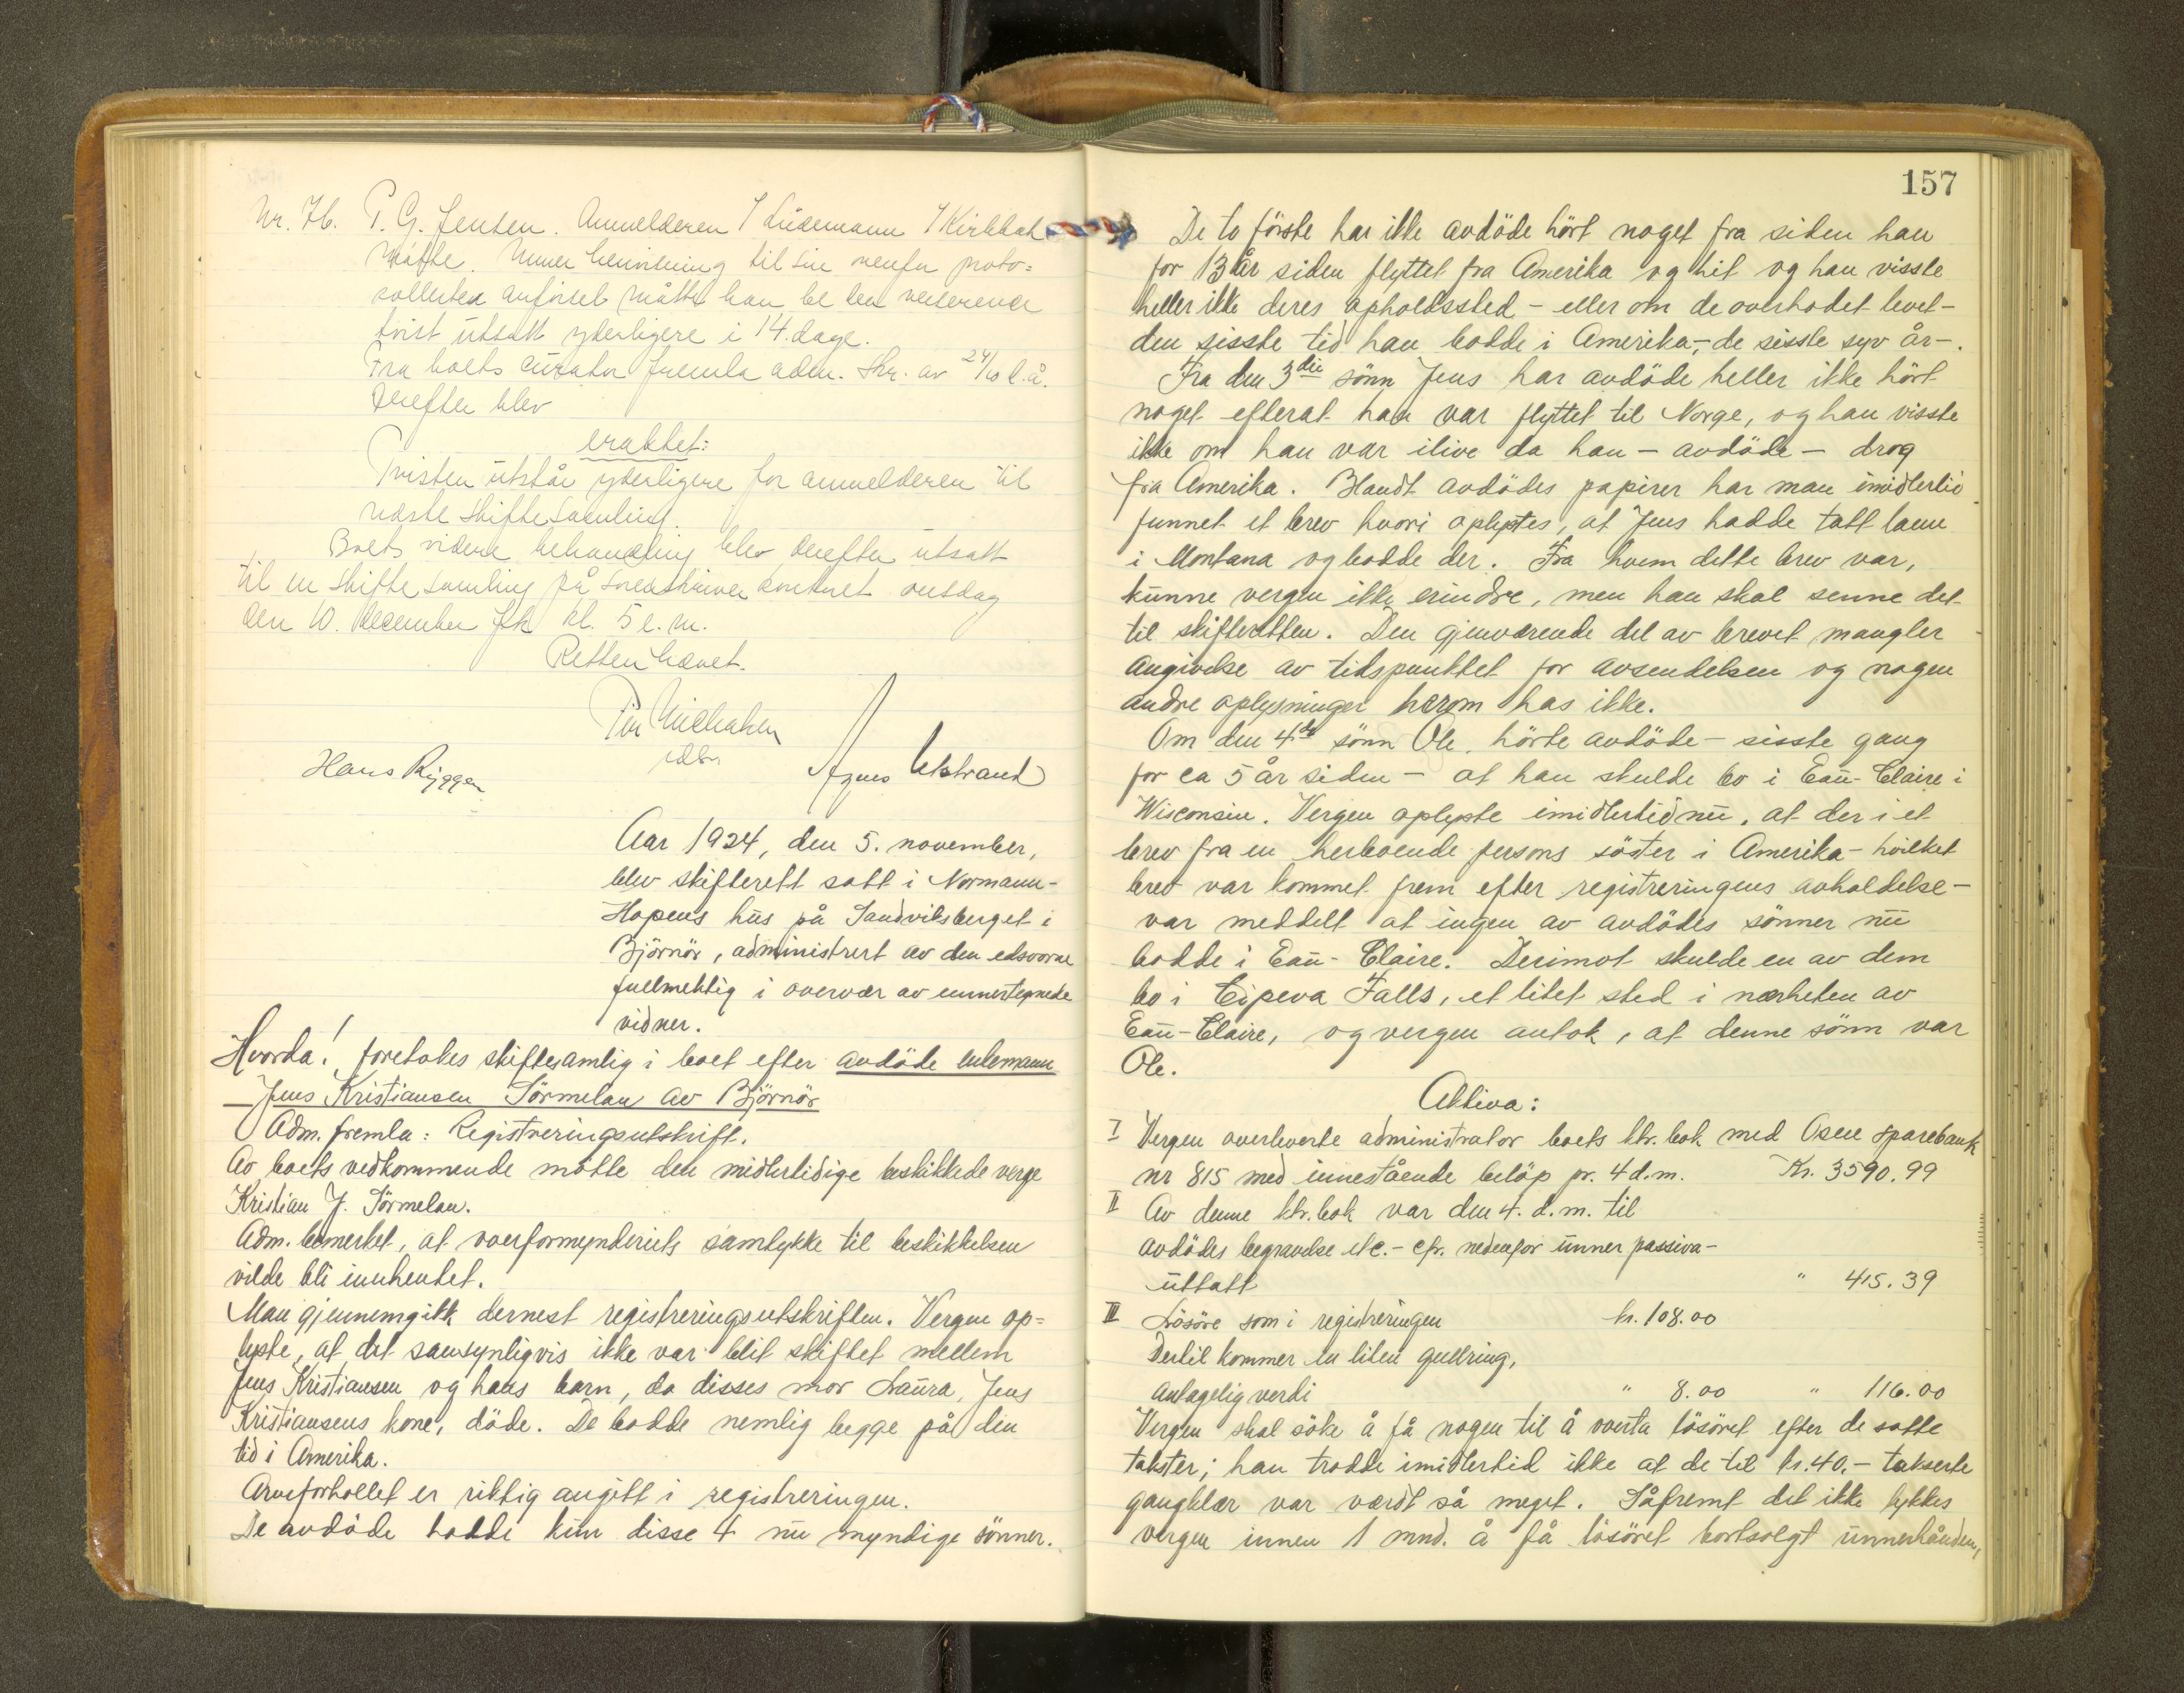 Nr. 76. P. G. Jensen. Anmelderen Lüdemann Kirkbak
møtte. Unner henvisning til sin nenfor proto-
collerte anførsel måtte han be den verserende
tvist utsatt yderligere i 14. dage.
Fra boets curator fremla adm. skr. av 24/10 d.å.
Derefter blev
eraktet:
Tvisten utstår yderligere for anmelderen til
næste skiftesamling.
Boets videre behandling blev derefter utsatt
til en skiftesamling på sorenskriverkontoret onsdag
den 10. december fk kl. 5 e.m.
Retten hævet.
Hans Ryggen
Agnes Utstrand
Aar 1924, den 5. november,
blev skifterett satt i Normann-
Hopens hus på Sandviksberget i
Björnör, administrert av den edsvorne
fullmektig i overvær av unnertegnede
vidner.
Hvorda! foretokes skiftesamlig i boet efter avdöde enkemann
Jens Kristiansen Sörmelan av Björnör
Adm. fremla: Registreringsutskrift.
Av boets vedkommende mötte den midlertidige beskikkede verge
Kristian J. Sörmelan.
Adm. bemerket, at overformynderiets samtykke til beskikkelsen
vilde bli innhentet.
Man gjennemgikk dernest registreringsutskriften. Vergen op-
lyste, at det sansynligvis ikke var blit skiftet mellem
Jens Kristiansen og hans barn, da disses mor Laura, Jens
Kristiansens kone, döde. De bodde nemlig begge på din
tid i Amerika.
Arveforhollet er riktig angitt i registreringen.
De avdöde hadde kun disse 4 nu myndige sönner.
157
De to förste har ikke avdöde hört noget fra siden han
for 13 år siden flyttet fra Amerika og hit og han visste
heller ikke deres opholdssted - eller om de overhodet levet -
den sisste tid han bodde i Amerika -, de sisste syv år -.
Fra den 3die sönn Jens har avdöde heller ikke hört
noget efterat han var flyttet til Norge, og han visste
ikke om han var ilive da han - avdöde - drog
fra Amerika. Blandt avdödes papirer har man imidlertid
funnet et brev hvori oplystes, at Jens hadde tatt lann
i Montana og bodde der. Fra hvem dette brev var,
kunne vergen ikke erindre, men han skal senne det
til skifteretten. Den gjenværende del av brevet mangler
angivelse av tidspunktet for avsendelsen og nogen
andre oplysninger herom has ikke.
Om den 4de sönn Ole, hörte avdöde - sisste gang
for ca 5 år siden - at han skulde bo i Eau-Claire i
Wisconsin. Vergen oplyste imidlertid nu, at der i et
brev fra en herboende persons söster i Amerika - hvilket
brev var kommet frem efter registreringens avholdelse -
var meddelt at ingen av avdödes sönner nu
bodde i Eau-Claire. Derimot skulde en av dem
bo i Cipeva Falls, et litet sted i nærheten av
Eau-Claire, og vergen antok, at denne sönn var
Ole.
Aktiva:
I Vergen overleverte administrator boets ktr. bok med Osen sparebank
nr 815 med innestående belöp pr. 4 d.m. Kr. 3590.99
II Av denne ktr. bok var den 4. d.m. til
avdödes begravelse etc. - cfr. nedenfor unner passiva -
uttatt " 415.39
III Lösöre som i registreringen kr. 108.00
Dertil kommer en liten gullring,
antagelig verdi " 8.00 " 116.00
Vergen skal söke å få nogen til å overta lösöret efter de satte
takster; han trodde imidlertid ikke at de til kr. 40.- takserte
gangklær var værdt så meget. Såfremt det ikke lykkes
vergen innen 1 mnd. å få lösöret bortsolgt unnerhånden,